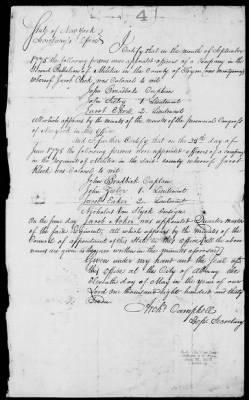 4
State of New York }
Secretary's Office }
I Certify that in the month of September
1775 the following persons were appointed officers of a Company in the
Second Battalion of Militia in the County of Tryon, now Montgomery
whereof Jacob Klock was Colonel to wit
John Captain
John 1 Lieutenant
Jacob 2 Lieutenant
All which appears by the minutes of the Provincial Congress
of New York in this Office
And I further Certify that on the 25th day of
June 1778 the following persons were appointed officers of a company
in the regiment of Militia in the said County whereof Jacob
Klock was Colonel to wit
John Captain
John 1 Lieutenant
Jacob 2 Lieutenant
Nicholas Van Slyck Ensign
On the same day Jacob was appointed Quarter master
of the said Regiment, All which appears by the minutes of the
Council of appointment of this State in this Office, the above
names are given as they are written in the minutes aforesaid
Given under my hand and the seal of
this Office at the City of Albany the
day of May in the year of our
Lord One thousand eight hundred and thirty
Archd Campbell
Dep. Secretary